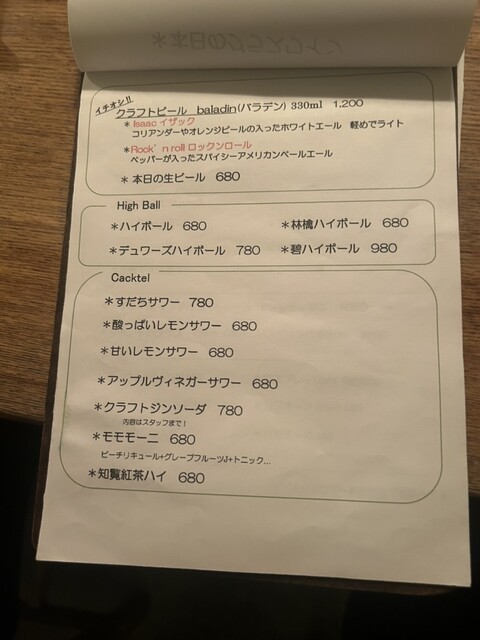 *本日のグラスワイン
イチオシ!!
クラフトビール baladin(バラデン) 330ml 1,200
*Isaac イザック
コリアンダーやオレンジピールの入ったホワイトエール 軽めでライト
*Rock'n roll ロックンロール
ペッパーが入ったスパイシーアメリカンペールエール
*本日の生ビール 680
High Ball
*ハイボール 680 *林檎ハイボール 680
*デュワーズハイボール 780 *碧ハイボール 980
Cacktel
*すだちサワー 780
*酸っぱいレモンサワー 680
*甘いレモンサワー 680
*アップルヴィネガーサワー 680
*クラフトジンソーダ 780
内容はスタッフまで!
*モモモーニ 680
ピーチリキュール+グレープフルーツJ+トニック...
*知覧紅茶ハイ 680